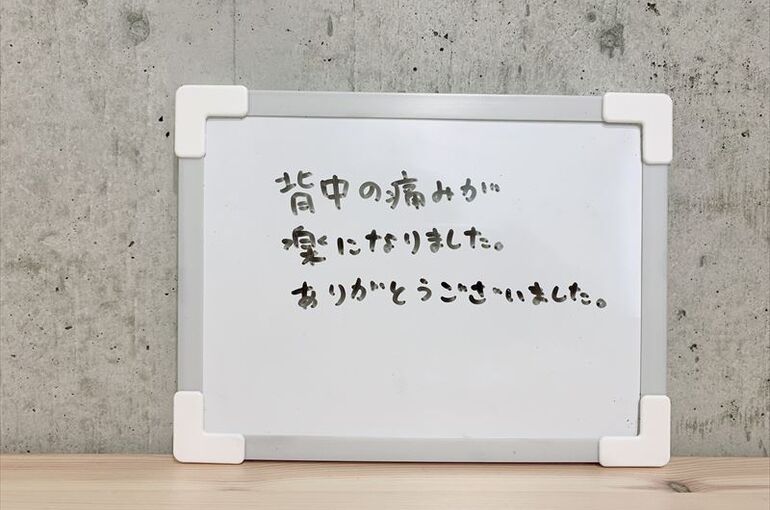 背中の痛みが
楽になりました。
ありがとうございました。